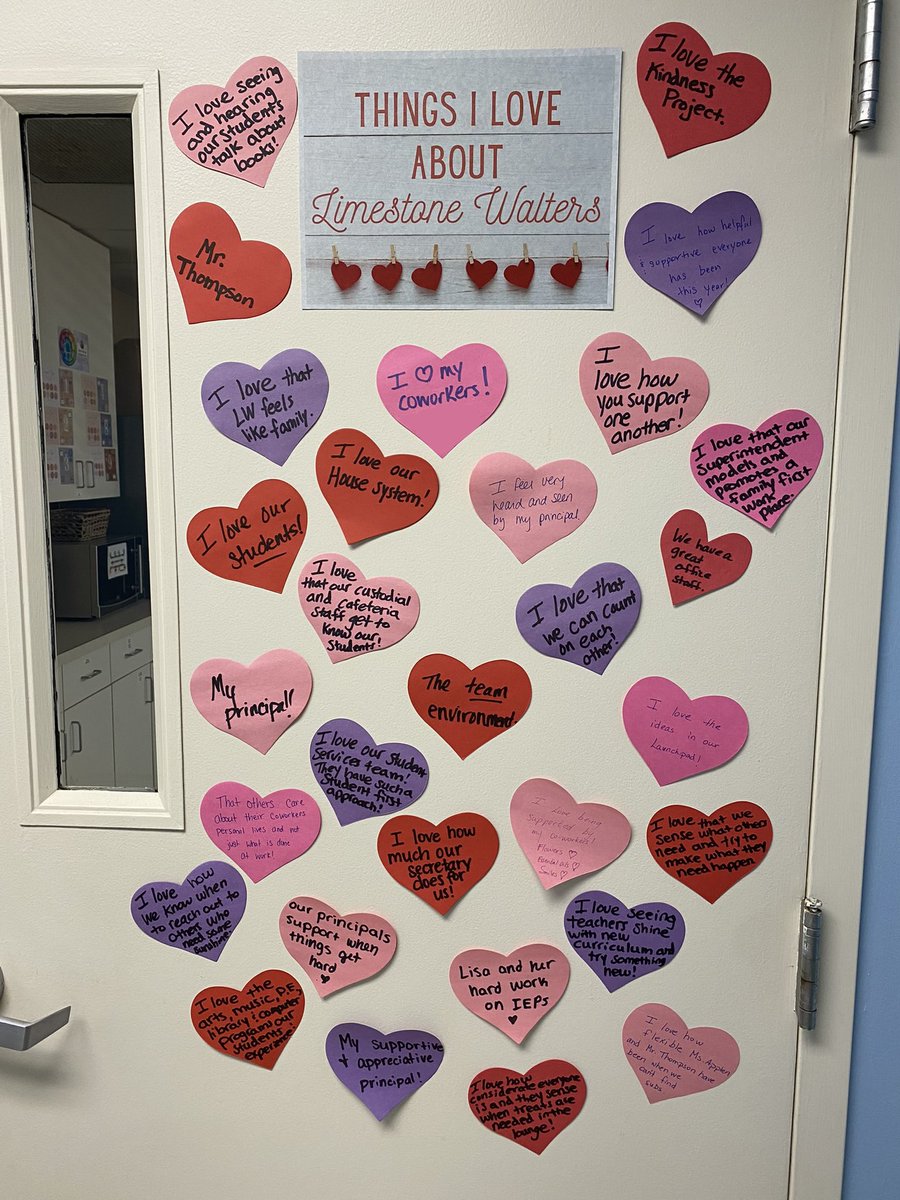 THINGS I LOVE
ABOUT
Limestone Walters
I love seeing
and hearing
our students
talk about
books!
I love the
Kindness
Project.
Mr.
Thompson
I love how helpful
& supportive everyone
has been
this year!
I love that
LW feels
like family.
I ♡ my
coworkers!
I
love how
you support
one
another!
I love that our
Superintendent
models and
promotes a
family first
work
place.
I love our
House System!
I feel very
heard and seen
by my principal.
I love our
students!
We have a
great
office
staff.
I love
that our custodial
and cafeteria
staff get to
know our
students!
I love that
we can count
on each
other!
My
principal!
The team
environment.
I love the
ideas in our
Launchpad!
I love our Student
Services team!
They have such a
Student first
approach!
That others care
about their coworkers
personal lives and not
just what is done
at work!
I love how
much our
secretary
does for
us!
I love being
supported by
my co-workers!
Flowers ♡
♡
Smiles ♡
I love that we
sense what others
need and try to
make what they
need happen
I love how
we know when
to reach out to
others who
need some
sunshine
our principals
support when
things get
hard
♥
I love seeing
teachers shine
with new
curriculum and
try something
new!
Lisa and her
hard work
on IEPs
♥
I love the
arts, music, P.E.,
library & computer
programs our
students
experience!
My supportive
& appreciative
principal!
I love how
considerate everyone
is and they sense
when treats are
needed in the
lounge!
I love how
flexible Ms. Applen
and Mr. Thompson have
been when we
can't find
subs